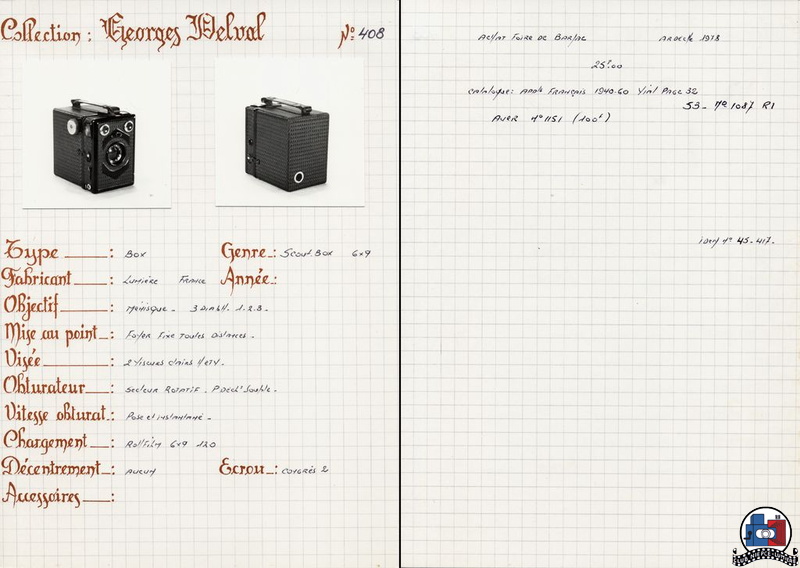 Collection : Georges Delval
N°: 408
Type : Box
Genre : Scout. Box 6x9
Fabricant : Lumière France
Année :
Objectif : Ménisque - 3 Diaph. 1.2.3.
Mise au point : Foyer Fixe Toutes Distances -
Visée : 2 Viseurs clairs
Obturateur : Secteur Rotatif .
Vitesse obturat. : Pose et instantané -
Chargement : Rollfilm 6x9 120
Décentrement : Aucun
Ecrou : Congrès 2
Accessoires :
Achat Foire de Barjac Ardeche 1978
25F.00
Catalogue: Français 1940.60 Vial Page 32
53 - n° 1087 R1
n° 1151 (100F)
idem n° 45 - 417.